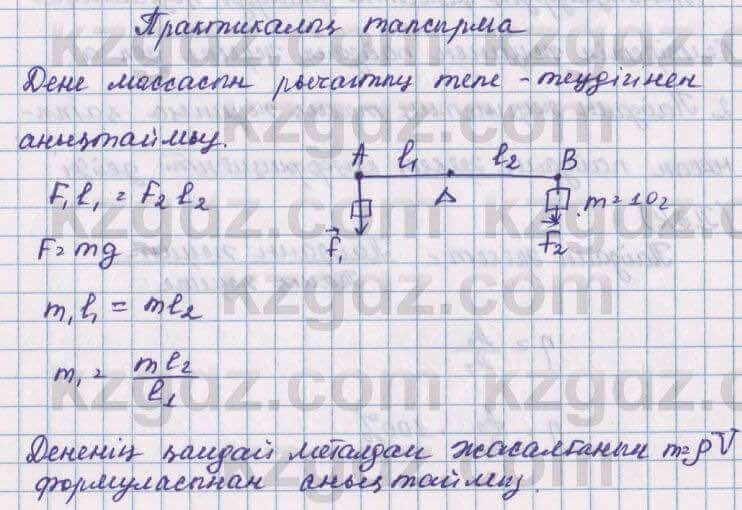 Практикалық тапсырма
Дене массасын рычагтың тепе-теңдігінен
анықтаймыз.
A l₁ l₂ B
F₁l₁ = F₂l₂
m = 10г
F = mg
F₁ F₂
m₁l₁ = ml₂
m₁ = ml₂/l₁
Дененің қандай металдан жасалғанын m=ρV
формуласынан анықтаймыз.
kzgdz.com